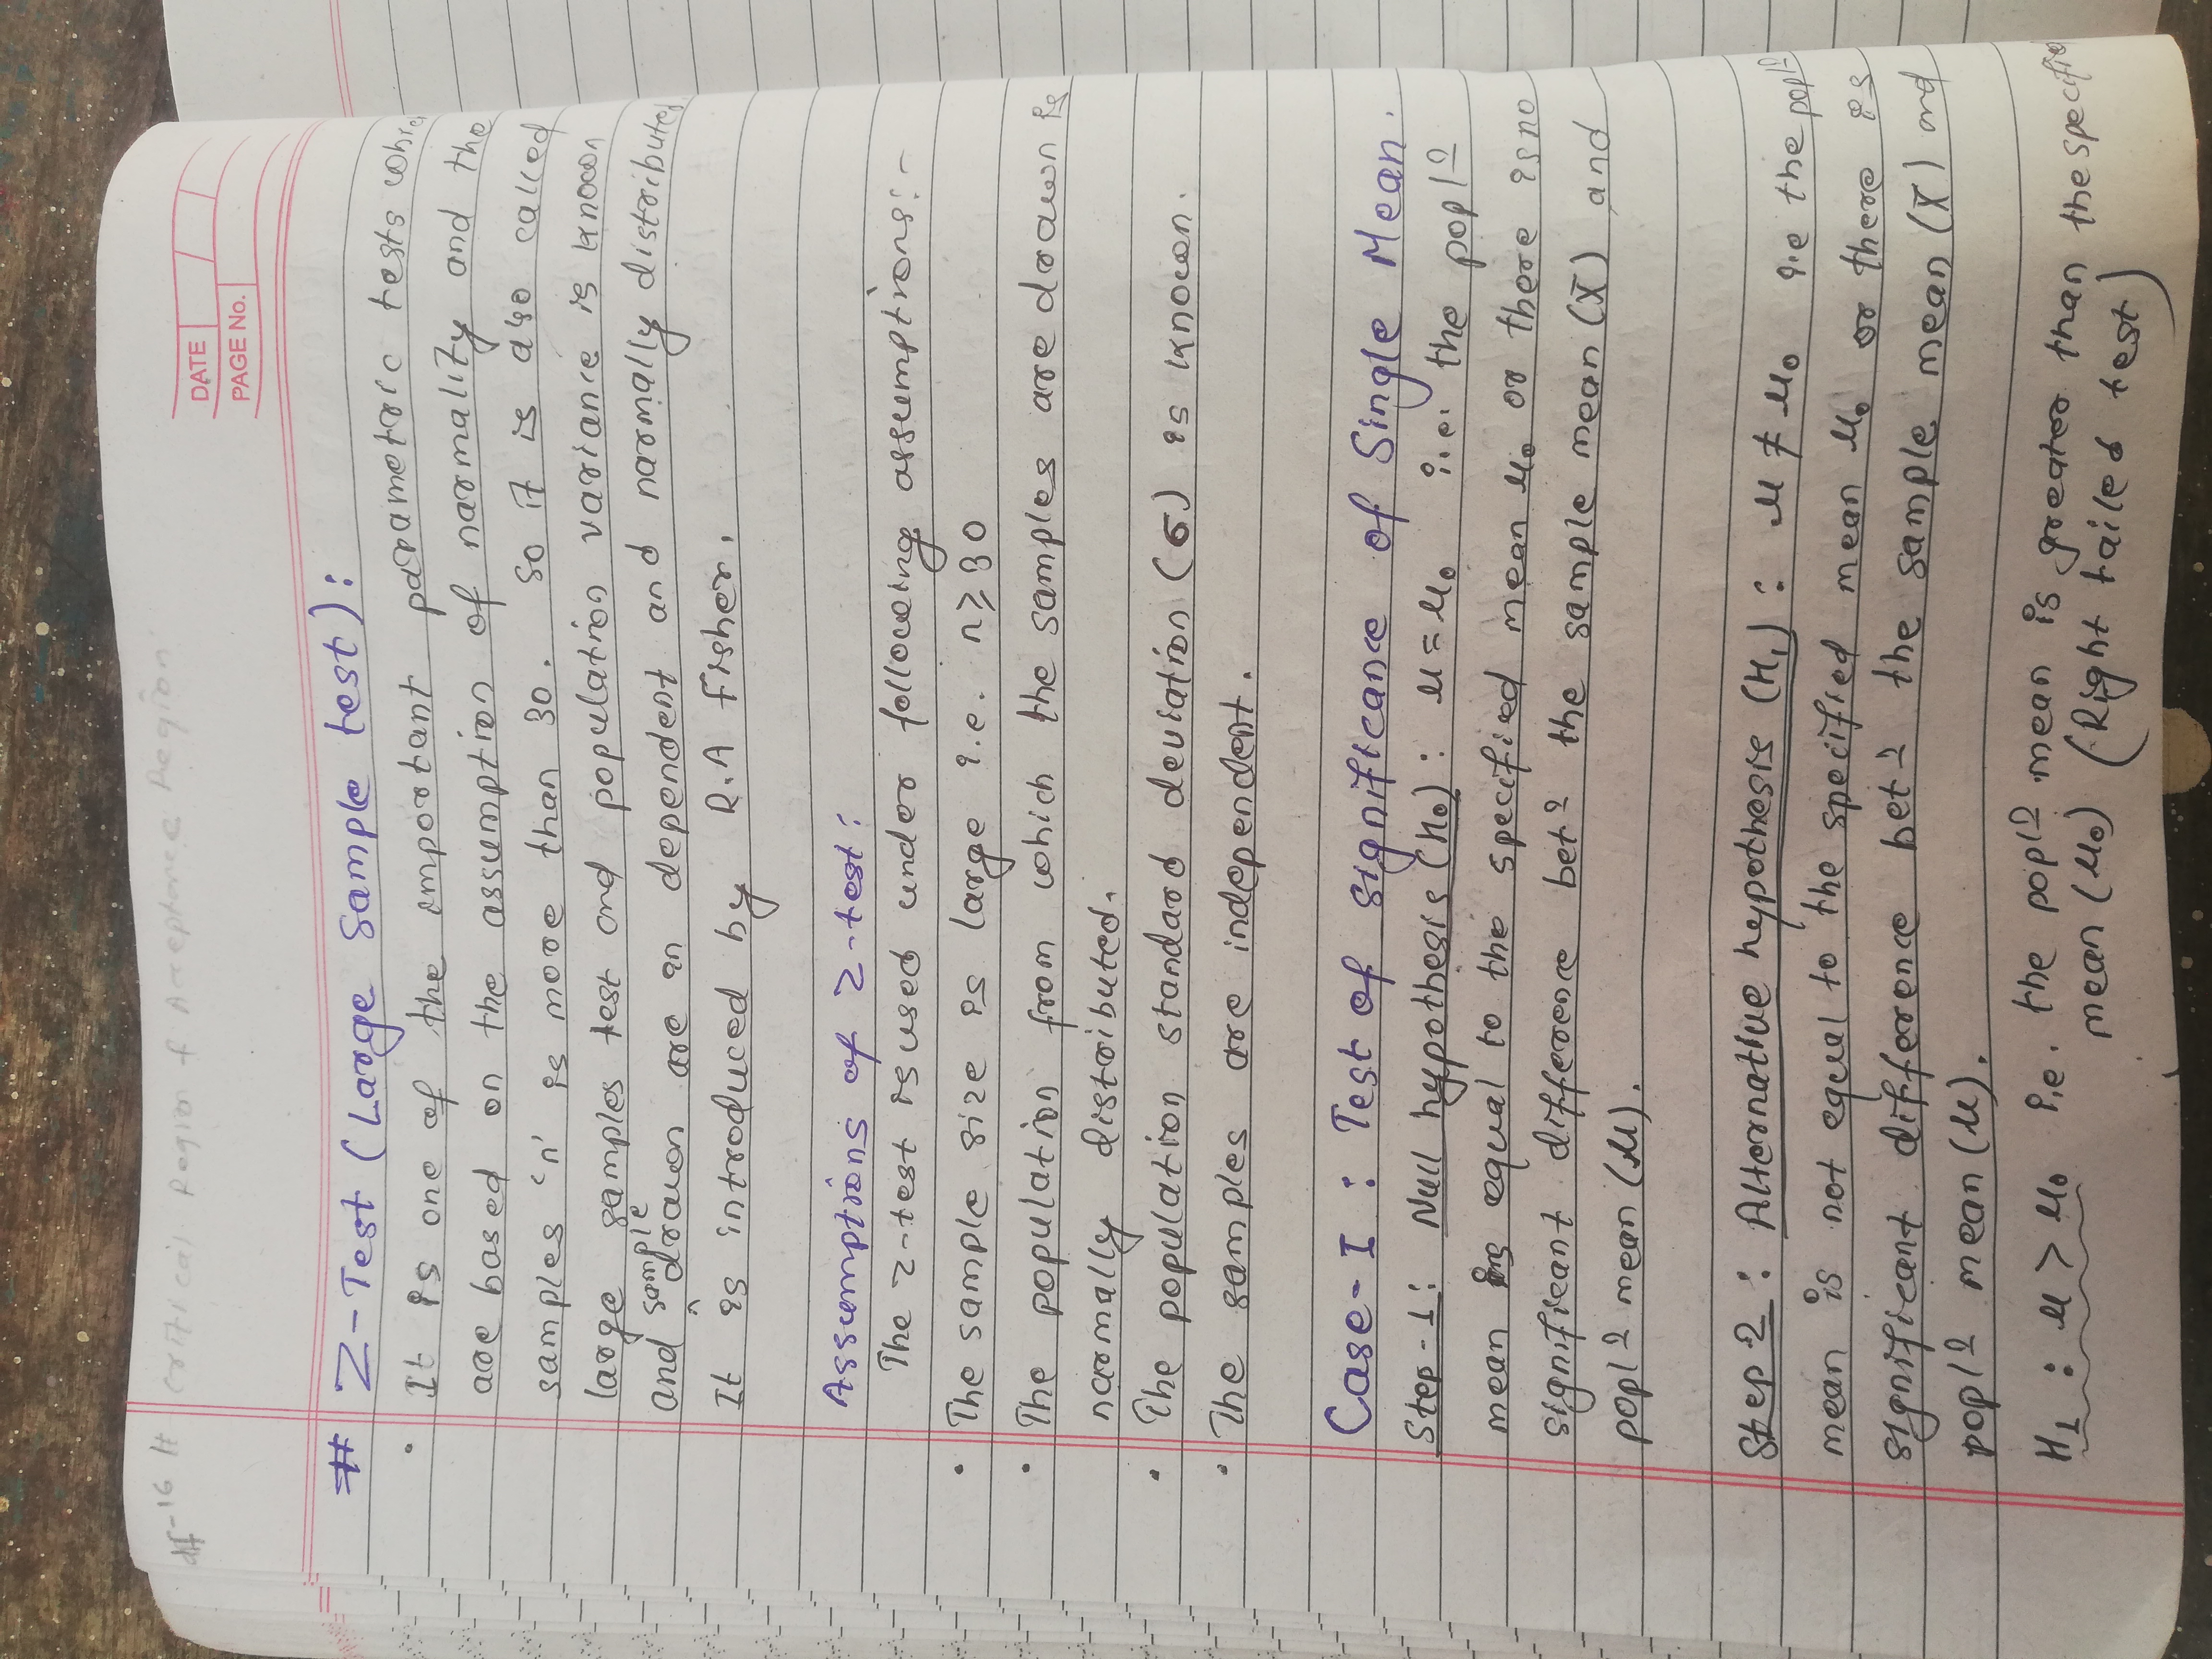 df-16 # Critical Region & Acceptance Region
DATE
PAGE No.
# Z-Test (Large Sample test):
• It is one of the important parametric tests whic
are based on the assumption of normality and the
samples 'n' is more than 30. So it is also called
large samples test and population variance is known
and sample drawn are in dependent and normally distributed
It is introduced by R.A Fisher.
Assumptions of Z-test:
The Z-test is used under following assumptions:-
• The sample size is large i.e. n≥30
• The population from which the samples are drawn is
normally distributed.
• The population standard deviation (σ) is known.
• The samples are independent.
Case-I : Test of significance of Single Mean.
Step-1: Null hypothesis (H₀): μ = μ₀ i.e. the popl<u>n</u>
mean is equal to the specified mean μ₀ or there is no
significant difference bet<u>n</u> the sample mean (X̄) and
popl<u>n</u> mean (μ).
Step 2: Alternative hypothesis (H₁): μ ≠ μ₀ i.e the popl<u>n</u>
mean is not equal to the specified mean μ₀ or there is
significant difference bet<u>n</u> the sample mean (X̄) and
popl<u>n</u> mean (μ).
H₁ : μ > μ₀ i.e. the popl<u>n</u> mean is greater than the specifie
mean (μ₀) (Right tailed test)